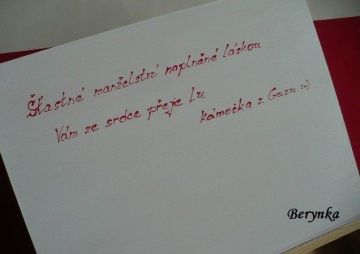 Šťastné manželství naplněné láskou
Vám ze srdce přeje Lu
kámoška z Guzu :-)
Berynka